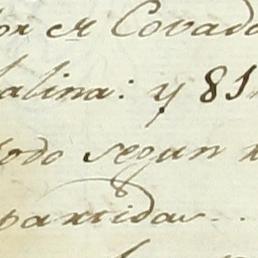 por el Covado
salina: y 81
todo segun
partidas..